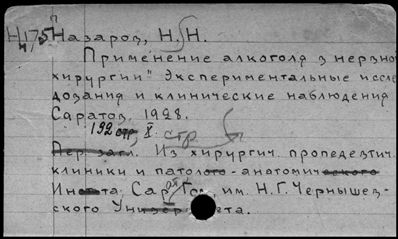 Н 175 Назаров, Н.Н.
Применение алкоголя в нервной
хирургии" Экспериментальные иссле
дования и клинические наблюдения
Саратов, 1928.
192 стр, X.
стр
Пер. загл. Из хирургич. пропедевтич.
клиники и патолого-анатомического
Ин та, Сар Гос, им. Н.Г. Чернышев-
ского Университета.